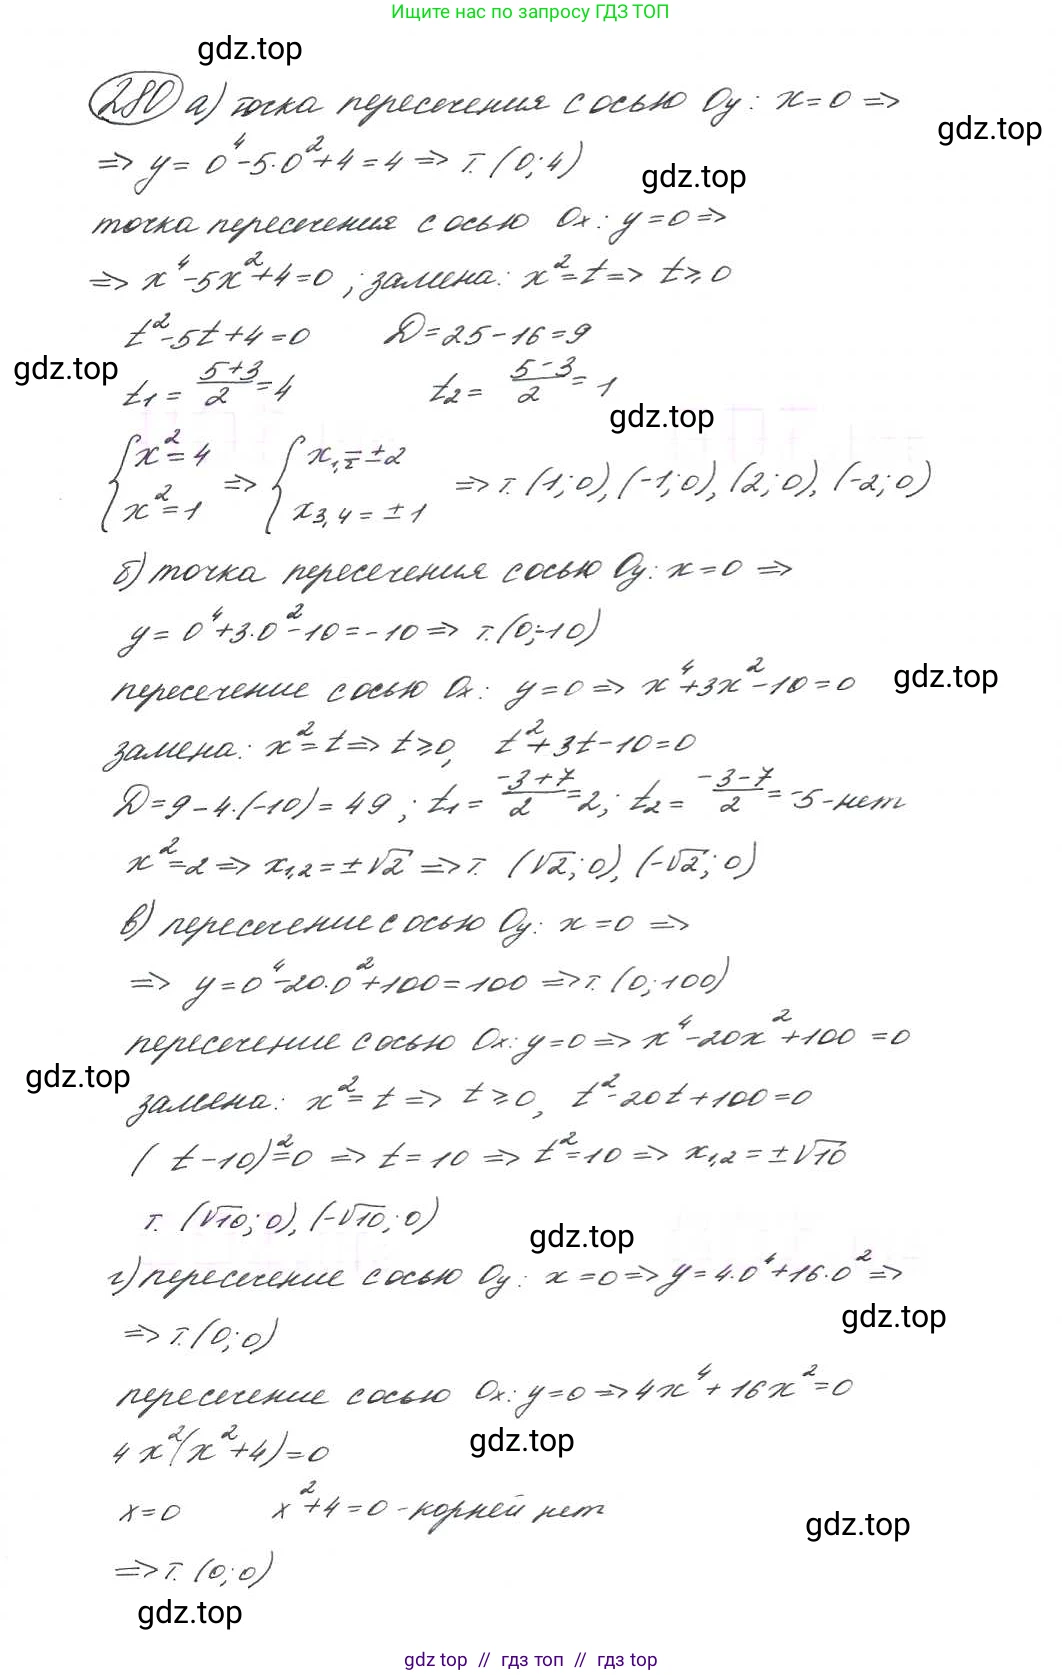 Ищите нас по запросу ГДЗ ТОП
gdz.top
280 а) точка пересечения с осью Oy: x=0 =>
gdz.top
=> y = 0⁴-5·0²+4=4 => т. (0;4)
gdz.top
точка пересечения с осью Ox: y=0 =>
=> x⁴-5x²+4=0 ; замена: x²=t => t≥0
t²-5t+4=0 D=25-16=9
gdz.top
t₁ = (5+3)/2 = 4 t₂ = (5-3)/2 = 1
gdz.top
{ x²=4 => { x₁,₂=±2 => т. (1;0), (-1;0), (2;0), (-2;0)
x²=1 x₃,₄=±1
б) точка пересечения с осью Oy: x=0 =>
y = 0⁴+3·0²-10=-10 => т. (0;-10)
пересечение с осью Ox: y=0 => x⁴+3x²-10=0
gdz.top
замена: x²=t => t≥0, t²+3t-10=0
D=9-4·(-10)=49 ; t₁ = (-3+7)/2 =2; t₂ = (-3-7)/2 = -5-нет
x²=2 => x₁,₂=±√2 => т. (√2;0), (-√2;0)
в) пересечение с осью Oy: x=0 =>
=> y=0⁴-20·0²+100=100 => т. (0;100)
пересечение с осью Ox: y=0 => x⁴-20x²+100=0
gdz.top
замена: x²=t => t≥0, t²-20t+100=0
(t-10)²=0 => t=10 => t²=10 => x₁,₂=±√10
т. (√10;0), (-√10;0)
gdz.top
г) пересечение с осью Oy: x=0 => y=4·0⁴+16·0² =>
gdz.top
=> т. (0;0)
пересечение с осью Ox: y=0 => 4x⁴+16x²=0
gdz.top
4x²(x²+4)=0
x=0 x²+4=0 -корней нет
gdz.top
=> т. (0;0)
gdz.top
gdz.top // гдз топ // gdz top